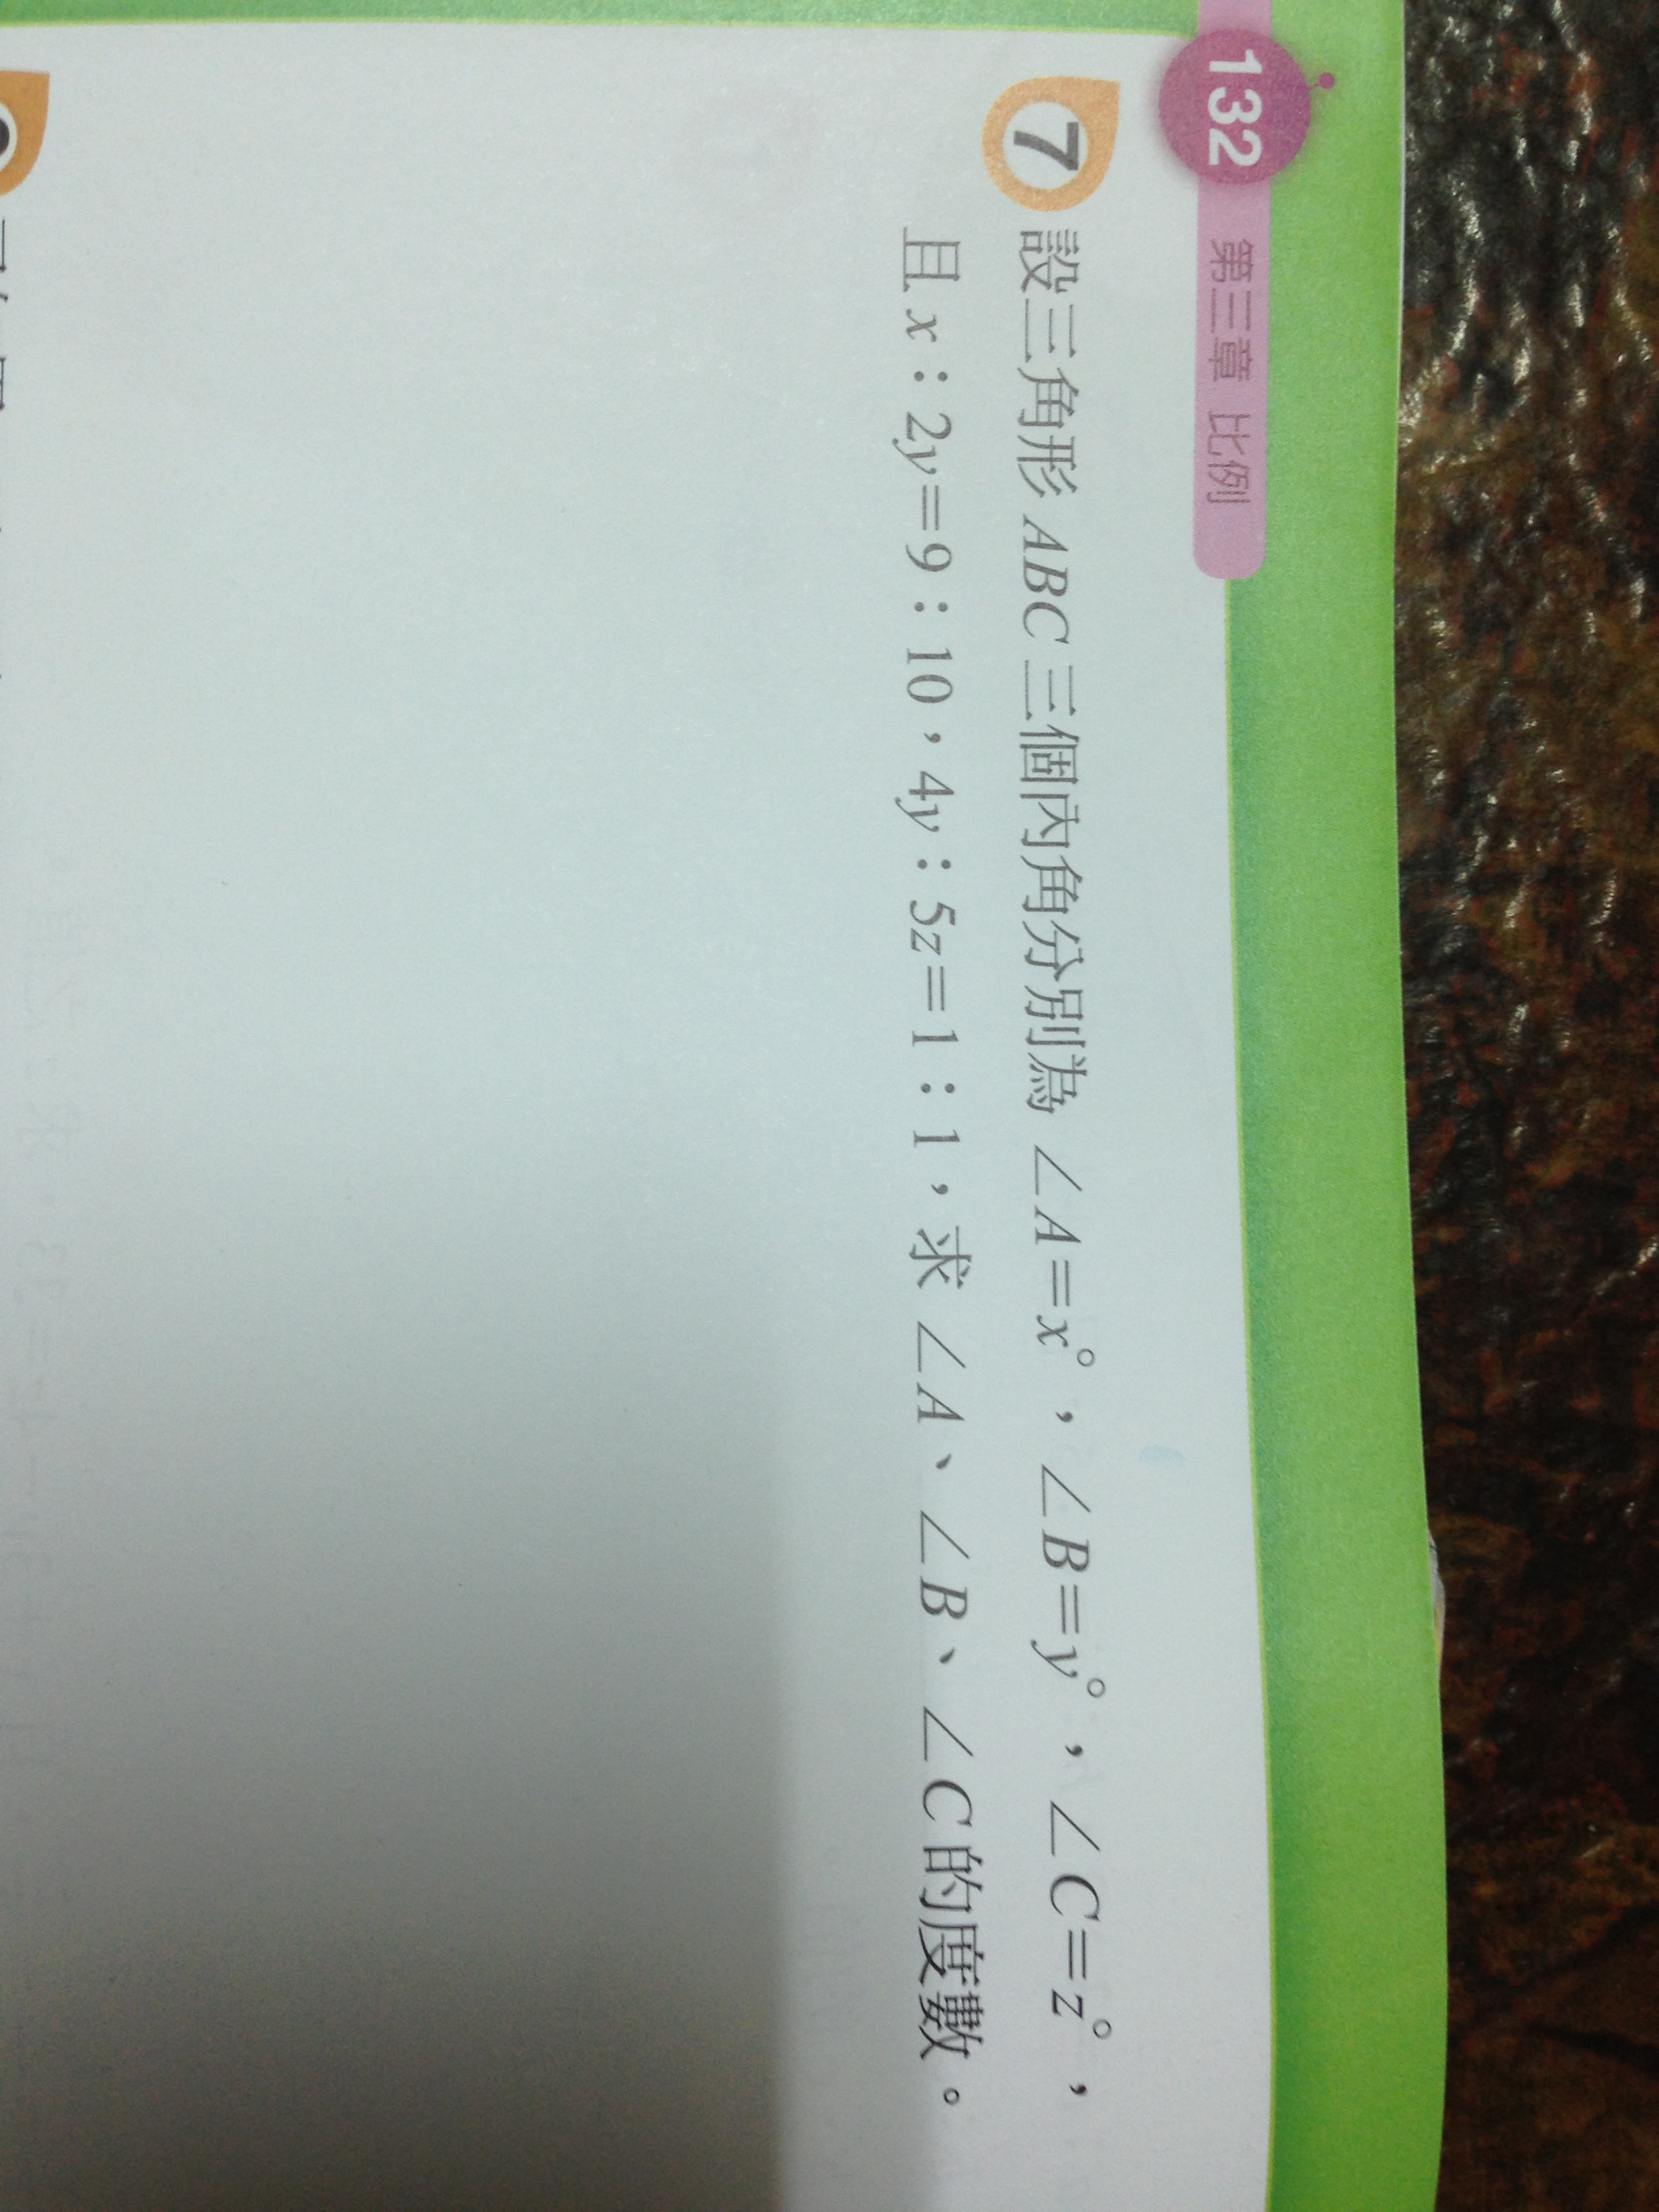 132 第三章 比例
7 設三角形 ABC 三個內角分別為 ∠A=x°，∠B=y°，∠C=z°，
且 x：2y=9：10，4y：5z=1：1，求 ∠A、∠B、∠C 的度數。